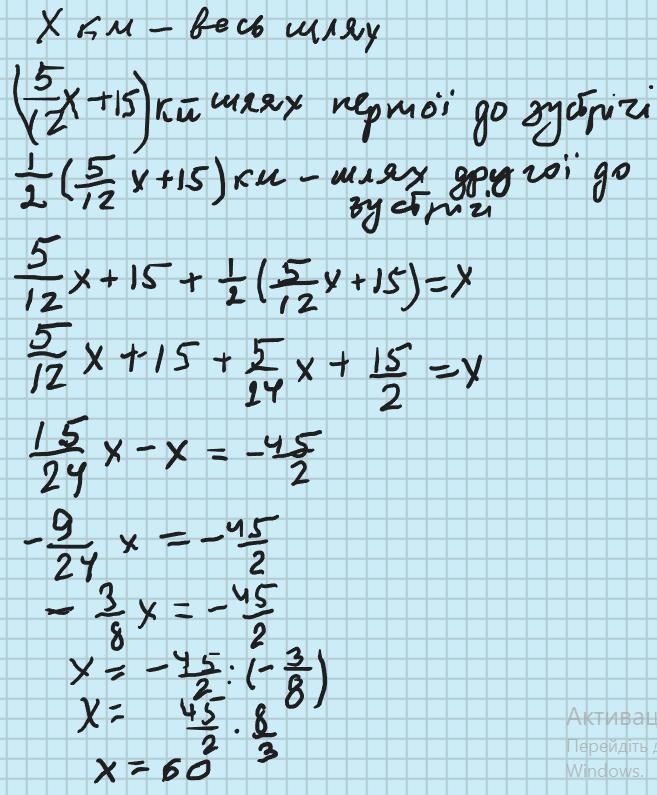 X км – весь шлях
(5/12 x + 15) км шлях першої до зустрічі
1/2 (5/12 x + 15) км – шлях другої до
зустрічі
5/12 x + 15 + 1/2 (5/12 x + 15) = x
5/12 x + 15 + 5/24 x + 15/2 = x
15/24 x – x = – 45/2
– 9/24 x = – 45/2
– 3/8 x = – 45/2
x = – 45/2 : (– 3/8)
x = 45/2 · 8/3
x = 60
Активац
Перейдіть д
Windows.